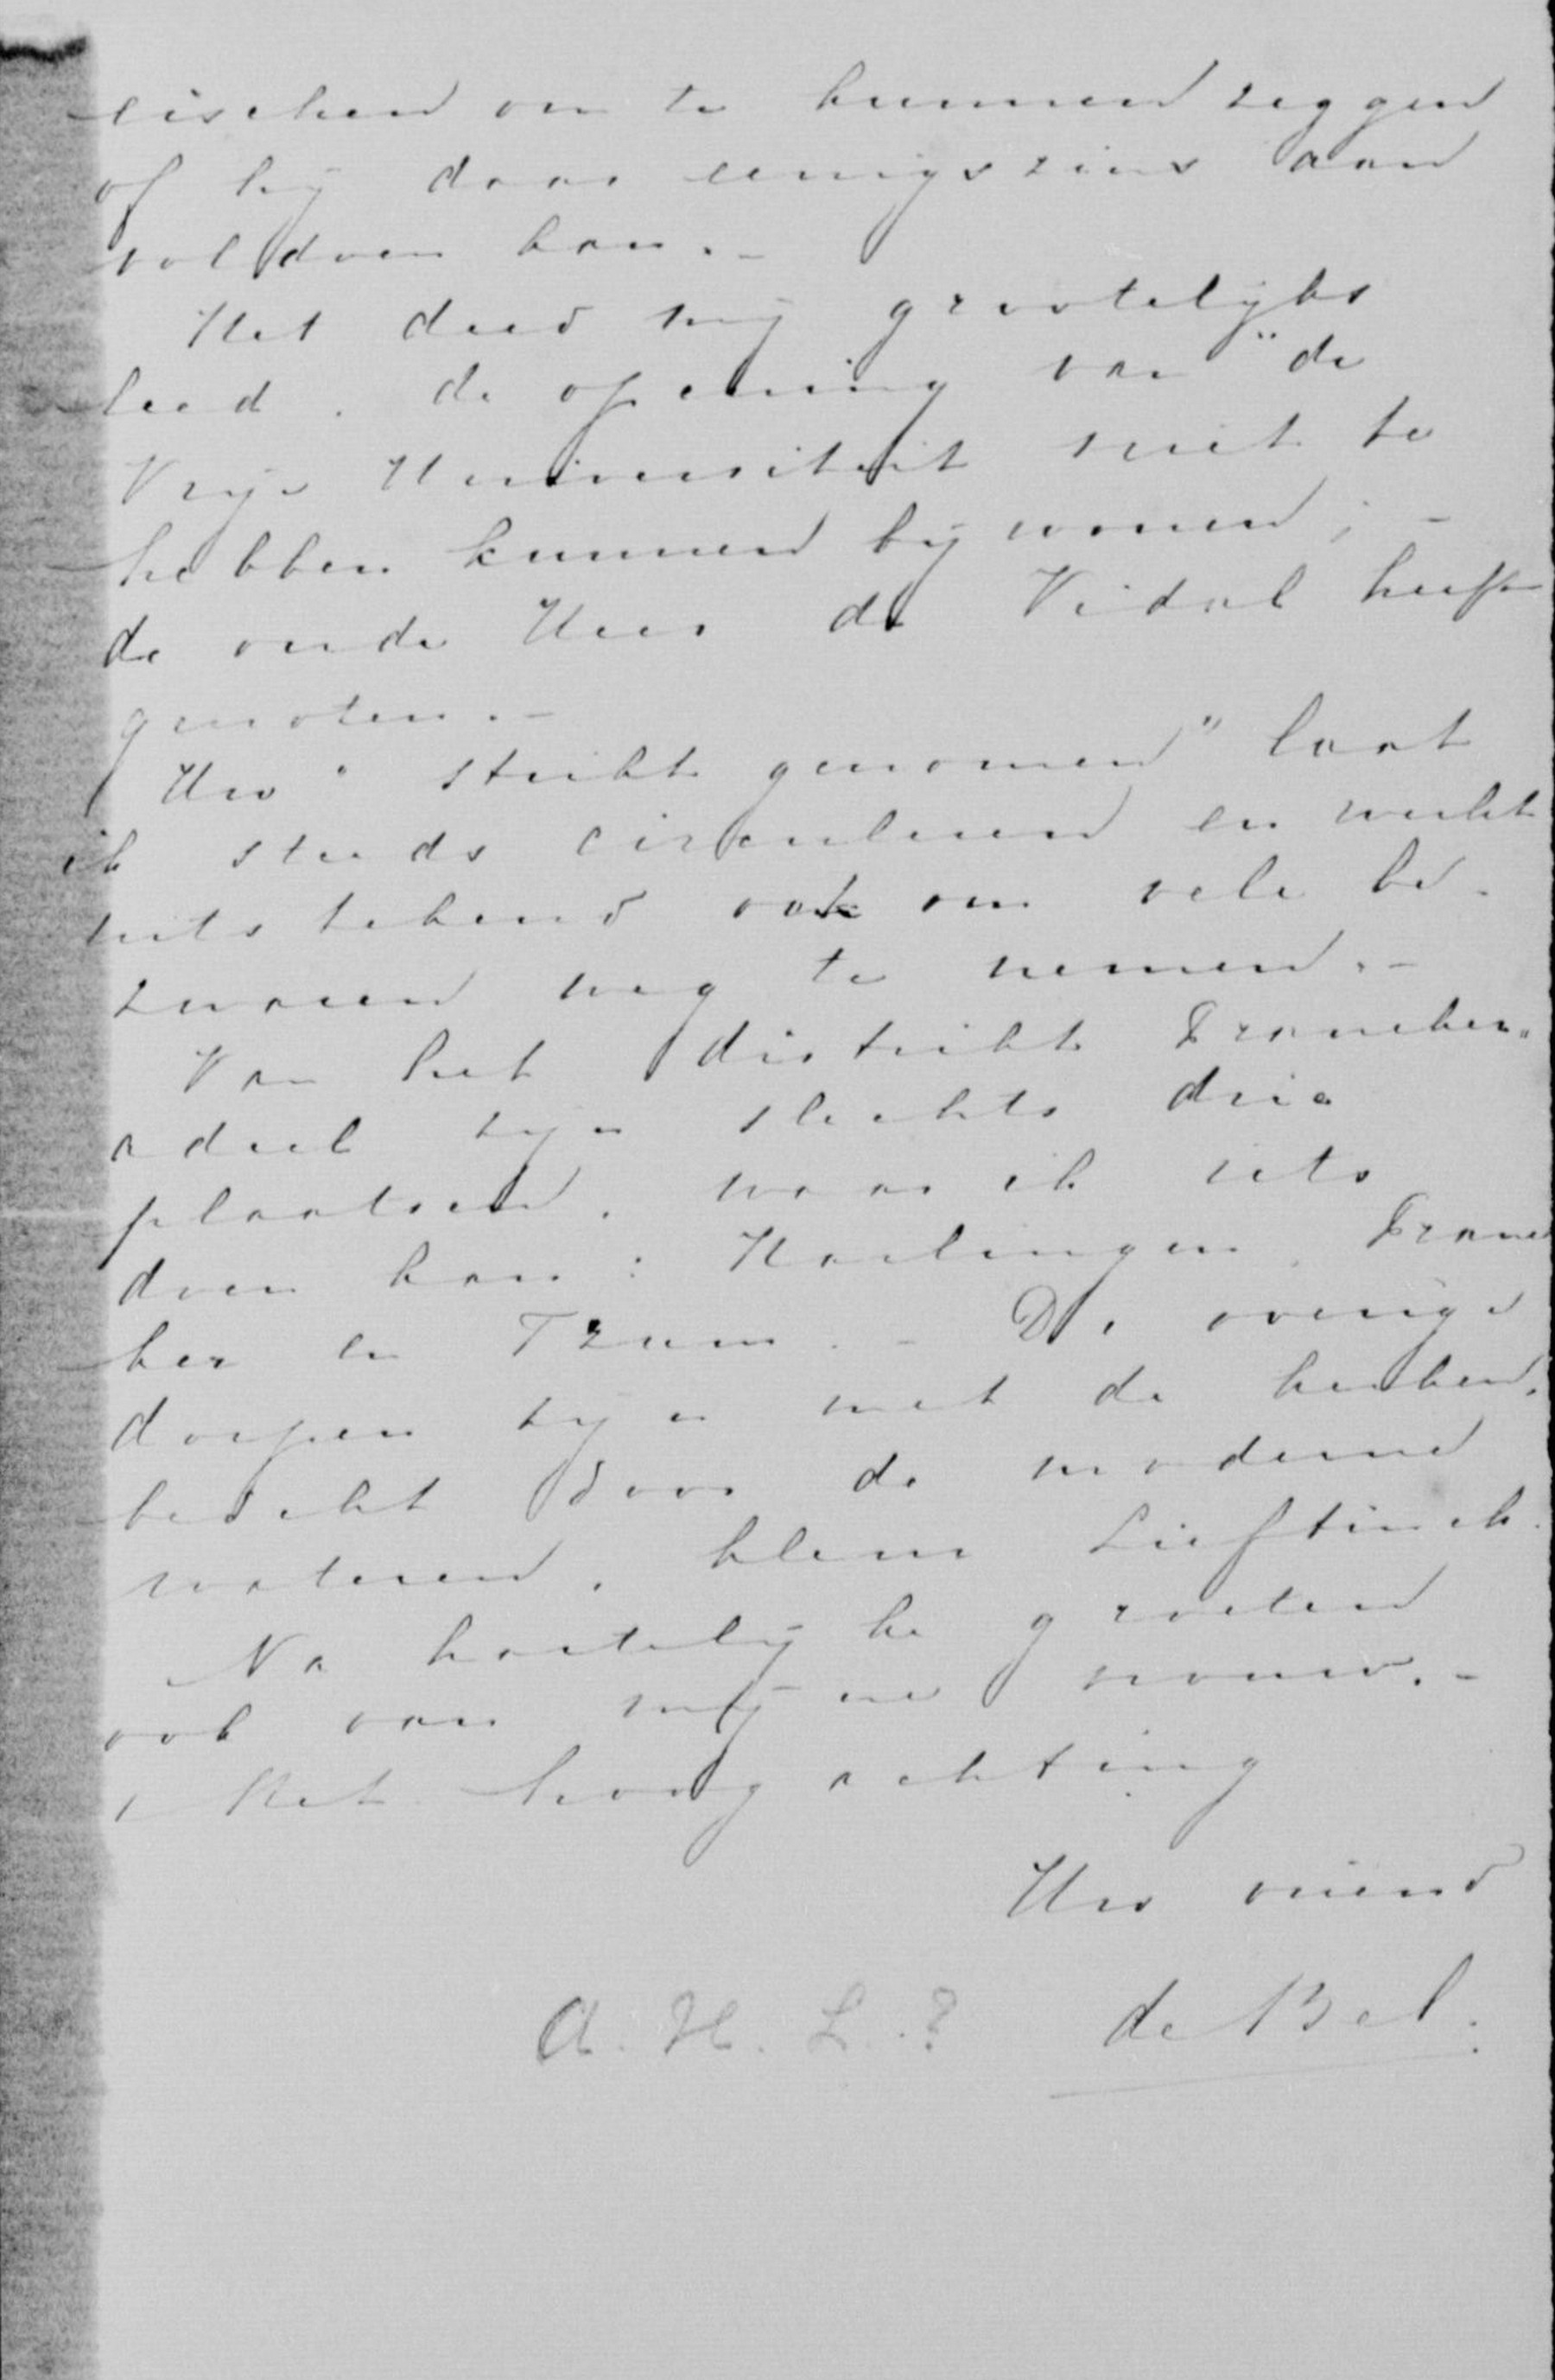 eischen om te kunnen zeggen
of hij daar eenigszins aan
voldoen kan. -
Het deed mij grootelijks
leed, de opening van "de
Vrije Universiteit niet te
hebben kunnen bijwonen; -
de oude Heer de Vidal heeft
genoten. -
Uw "strikt genomen" laat
ik steeds circuleren en werkt
uitstekend ook om vele be-
zwaren weg te nemen. -
Van het distrikt Franeker-
adeel zijn slechts drie
plaatsen, waar ik iets
doen kan: Harlingen, Frane
ker en Tzum. - De overige
dorpen zijn met de kerken,
bedekt door de moderne
wateren, klem Lieftinck.
Na hartelijke groeten
ook van mijne vrouw. -
Met hoogachting
Uw vriend
A. H. L.? de Bel.